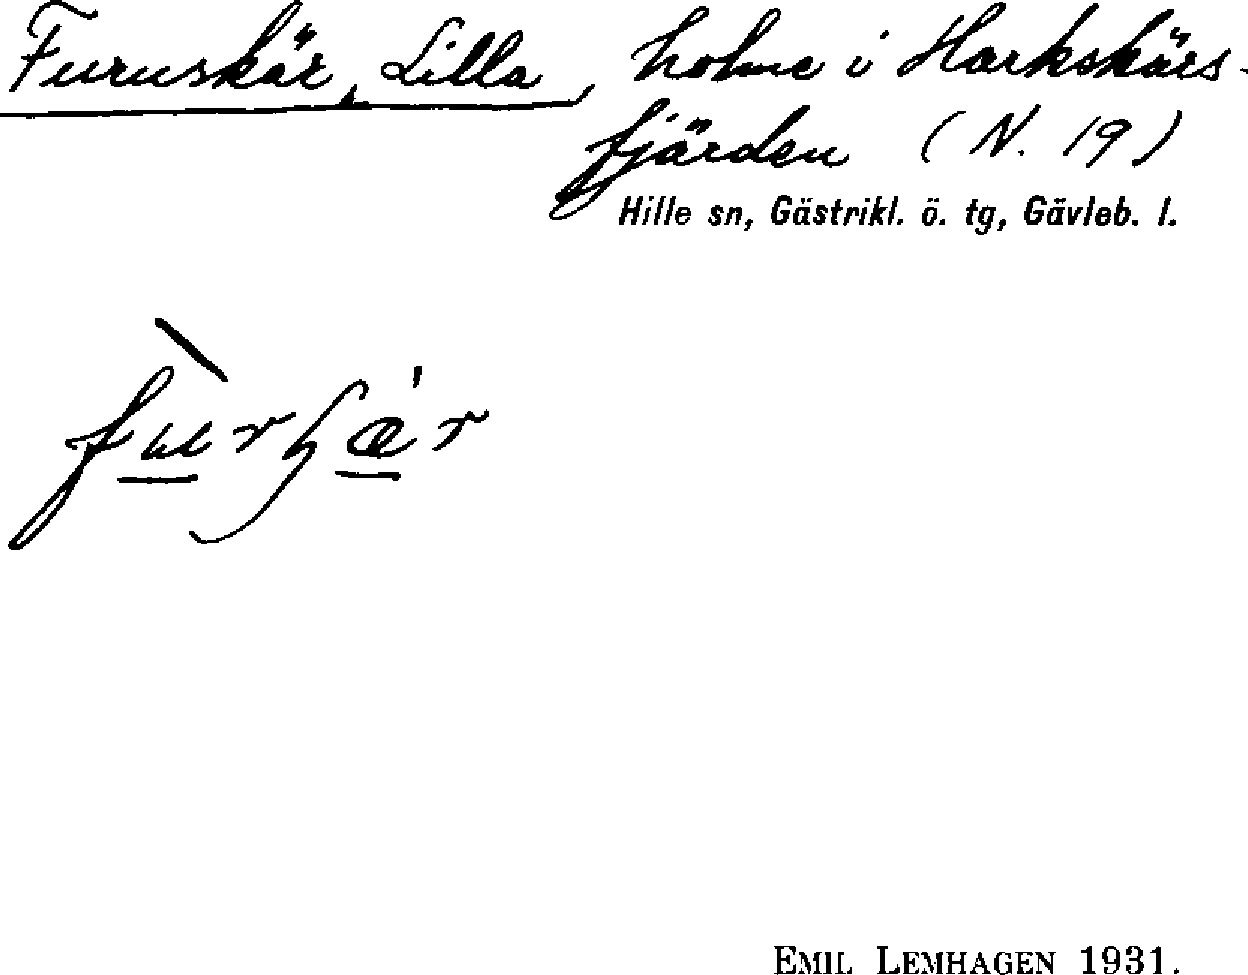 Furuskär, Lilla, holme i Harkskärs-
fjärden (N. 19)
Hille sn, Gästrikl. ö. tg, Gävleb. l.
EMIL LEMHAGEN 1931.